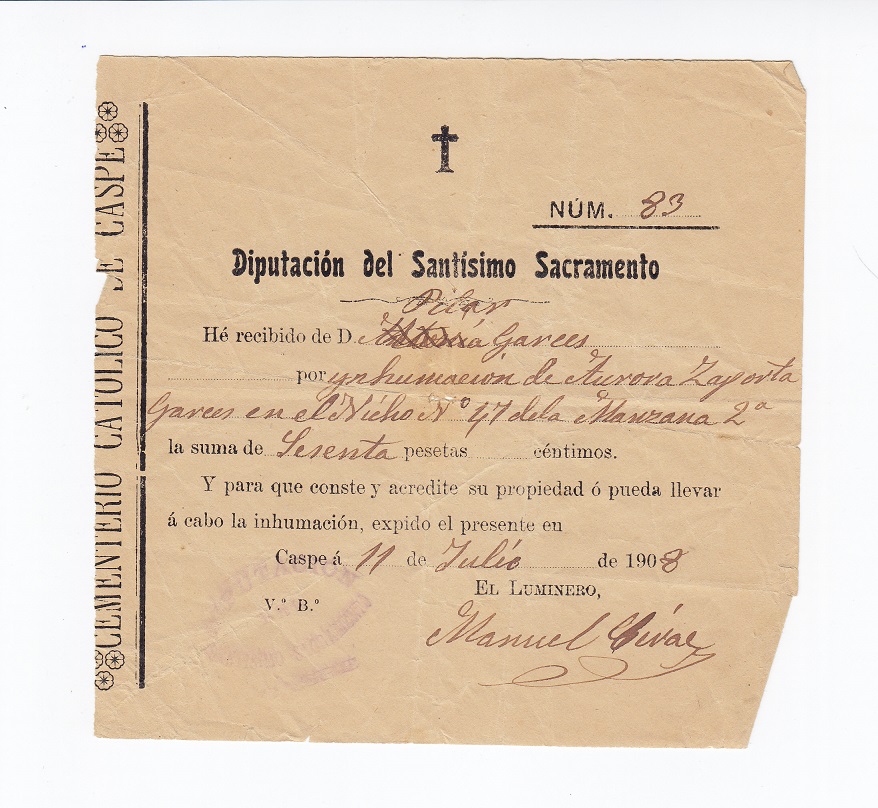 CEMENTERIO CATÓLICO DE CASPE
NÚM. 83
Diputación del Santísimo Sacramento
Pilar
Hé recibido de D. Antonia Garces
por ynhumación de Aurora Zaporta
Garces en el Nicho Nº 47 dela Manzana 2ª
la suma de Sesenta pesetas céntimos.
Y para que conste y acredite su propiedad ó pueda llevar
á cabo la inhumación, expido el presente en
Caspe á 11 de Julio de 1908
EL LUMINERO,
V.º B.º
Manuel